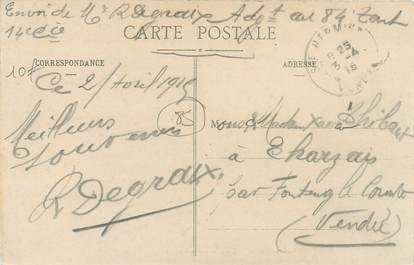 Envoi de Mr R Degraix Adjt au 84 Territ
14e Cie
CARTE POSTALE
CORRESPONDANCE
ADRESSE
10f
Ce 2 Avril 1915
85
Meilleurs
souvenirs
R Degraix.
Madame
à Tharzais
par Fontenay le Comte
(Vendée)